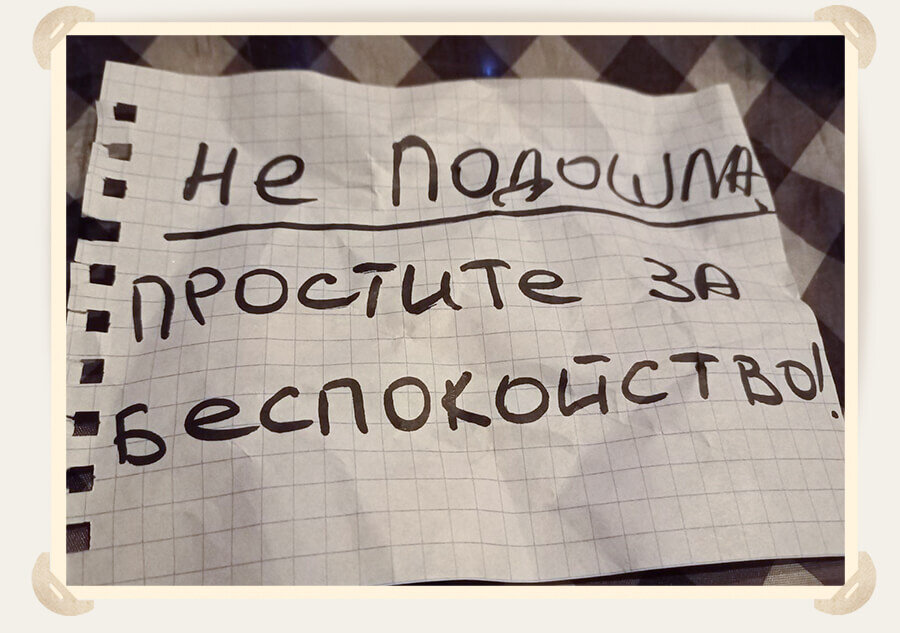 Не подошла,
простите за
беспокойство!